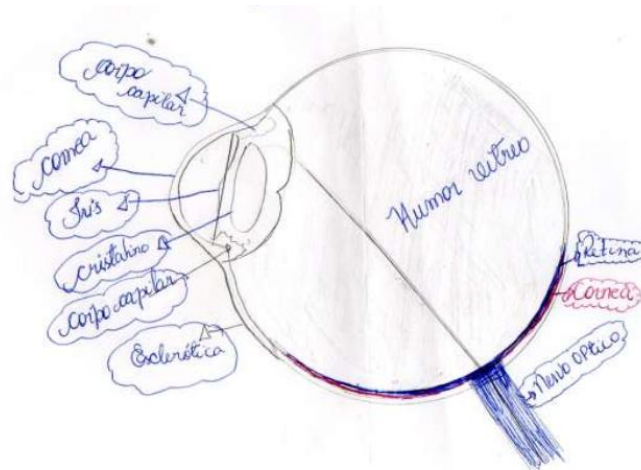 corpo
capilar
cornea
Iris
cristalino
corpo capilar
Esclerótica
Humor vitreo
Retina
Cornea
Nervo óptico